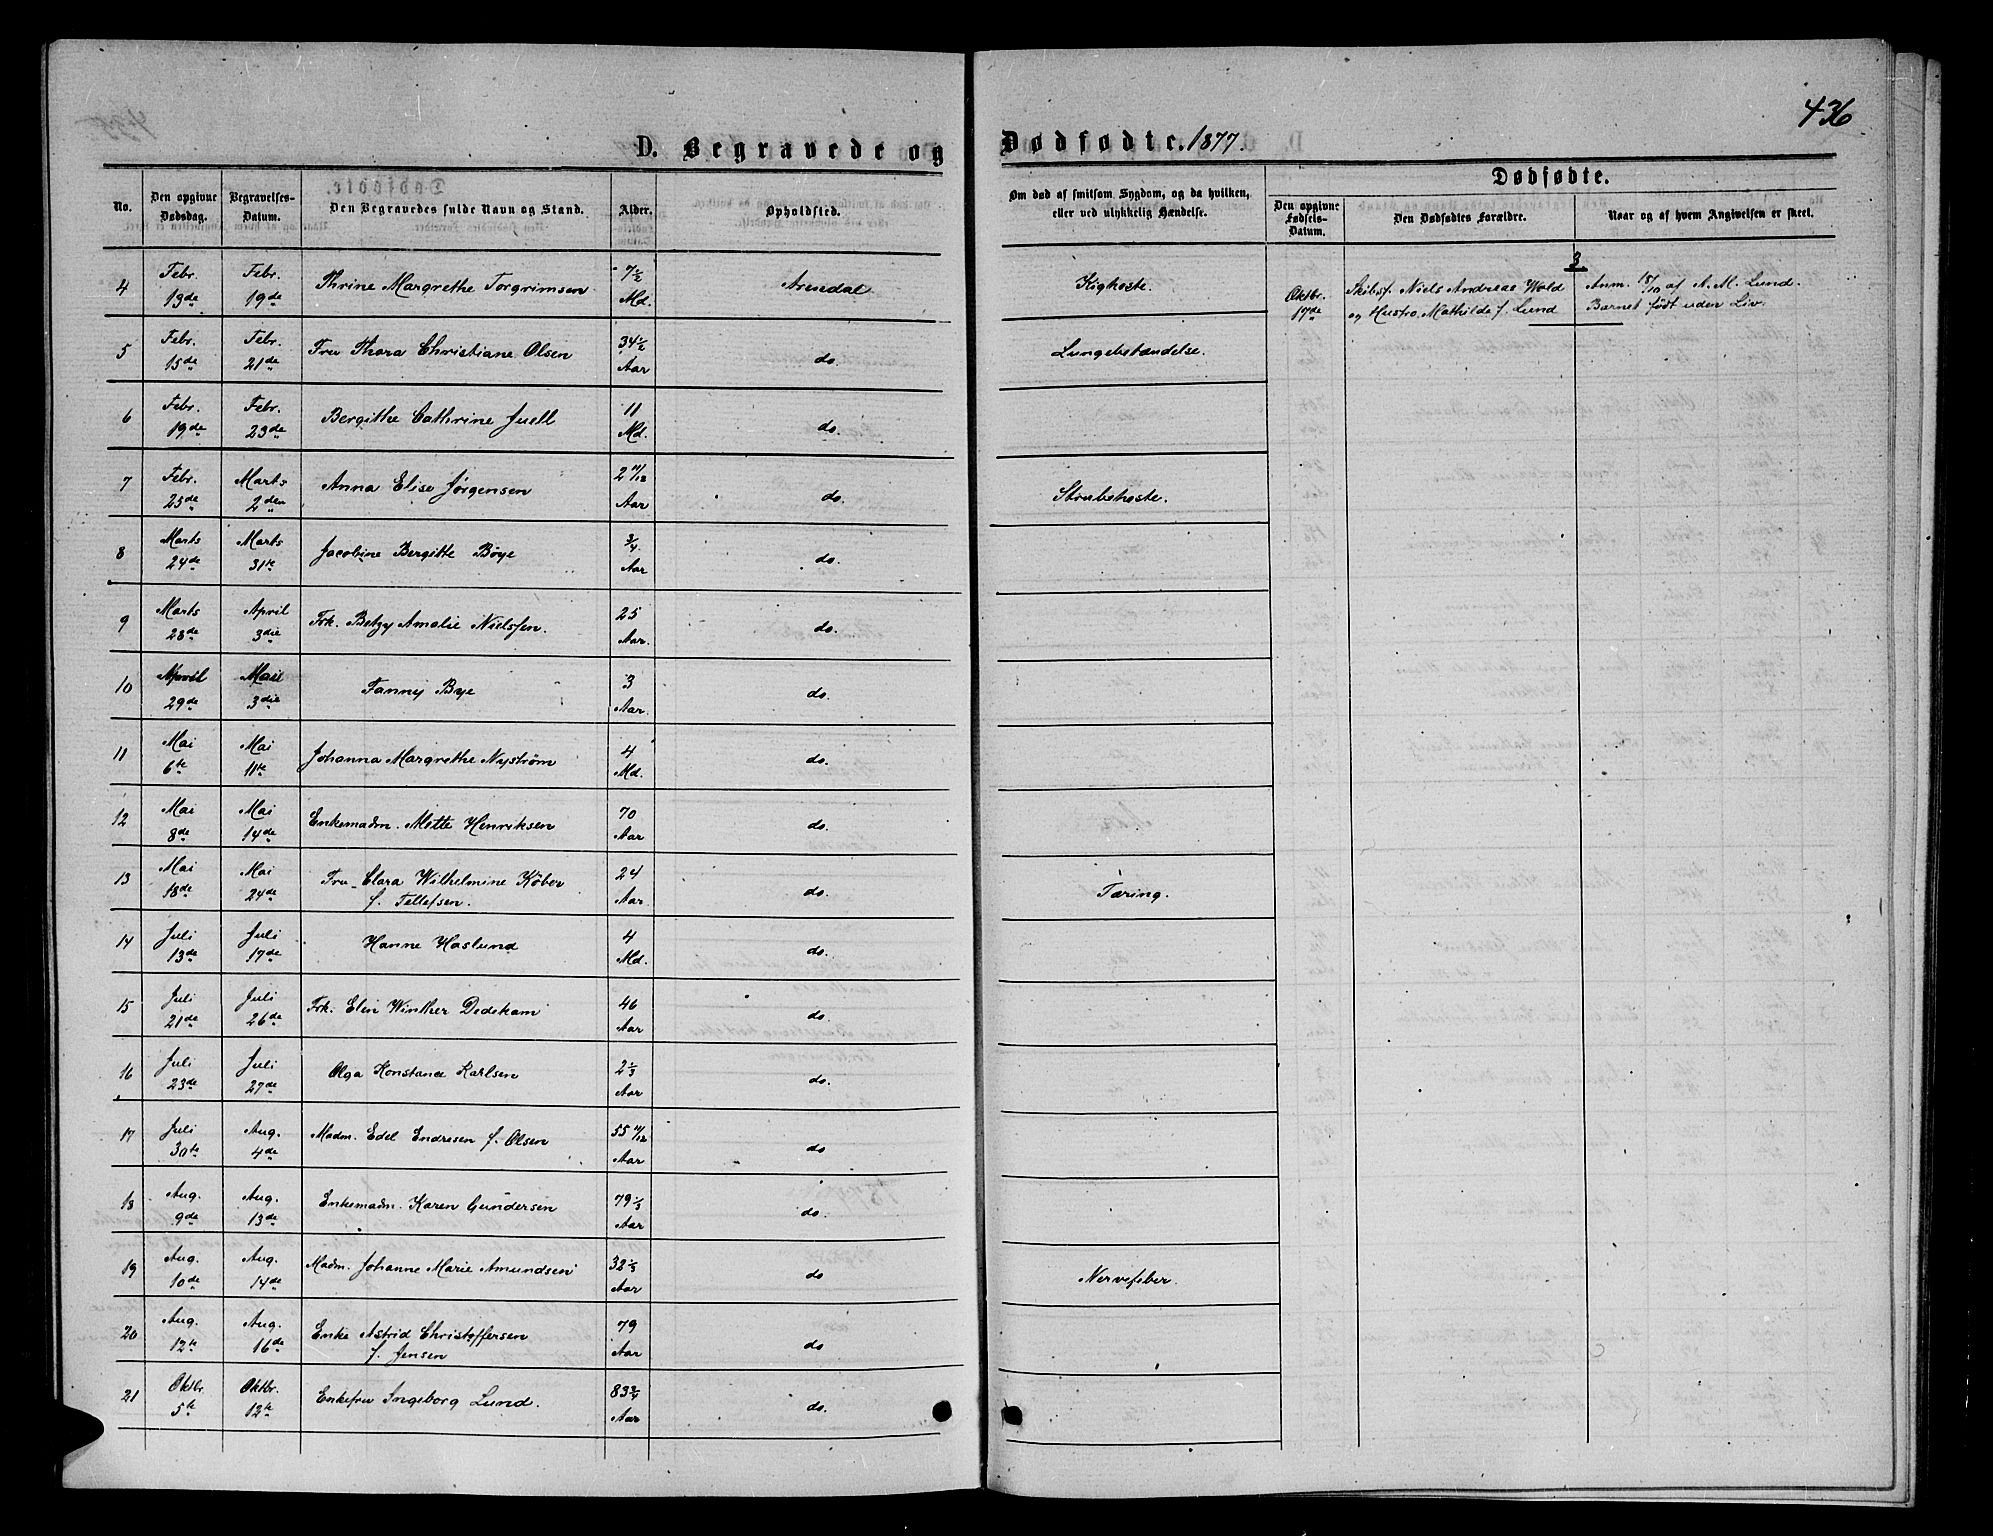 436
D. Begravede og Dødfødte. 1877.
No. | Den opgivne Dødsdag. | Begravelses-Datum. | Den Begravedes fulde Navn og Stand. | Alder. | Opholdsted. | Om død af smitsom Sygdom, og da hvilken, eller ved ulykkelig Hændelse.
Dødfødte.
Den opgivne Fødsels-Datum. | Den Dødfødtes Forældre. | Naar og af hvem Angivelsen er skeet.
4 | Febr. 13de | Febr. 19de | Thrine Margrethe Torgrimsen | 7 1/2 Md. | Arendal | Kighoste.
3
Oktbr. 17de | Skibsf. Niels Andreae Wold og Hustro Mathilde f. Lund | Anm. 18/10 af A. M. Lund. Barnet født uden Liv.
5 | Febr. 15de | Febr. 21de | Fru Thora Christiane Olsen | 34 1/2 Aar | do. | Lungebetændelse.
6 | Febr. 19de | Febr. 23de | Bergithe Cathrine Juell | 11 Md. | do.
7 | Febr. 25de | Marts 2den | Anna Elise Jørgensen | 2 11/12 Aar | do. | Strubehoste.
8 | Marts 24de | Marts 31te | Jacobine Bergitte Böye | 3/4 Aar | do.
9 | Marts 28de | April 3die | Frk. Betzy Amalie Nielsfen. | 25 Aar. | do.
10 | April 29de | Mai 3die | Fanny Bye | 3 Aar. | do.
11 | Mai 6te | Mai 11te | Johanna Margrethe Nyström | 4 Md. | do.
12 | Mai 8de | Mai 14de | Enkemadm. Mette Henriksen | 70 Aar | do.
13 | Mai 18de | Mai 24de | Fru Clara Wilhelmine Köber f. Tellefsen. | 24 Aar. | do. | Tæring.
14 | Juli 13de | Juli 17de | Hanne Haslund | 4 Md. | do.
15 | Juli 21de | Juli 26de | Frk. Elen Winther Dedekam | 46 Aar | do.
16 | Juli 23de | Juli 27de | Olga Konstance Karlsen | 2 1/3 Aar | do.
17 | Juli 30te | Aug. 4de | Madm. Edel Endresen f. Olsen | 55 11/12 Aar | do
18 | Aug. 9de | Aug. 13de | Enkemadm. Karen Gundersen | 79 1/3 Aar | do.
19 | Aug. 10de | Aug. 14de | Madm. Johanne Marie Amundsen | 32 1/3 Aar | do | Nervefeber.
20 | Aug. 12te | Aug. 16de | Enke Astrid Christoffersen f. Jensen | 79 Aar | do
21 | Oktbr. 5te | Oktbr. 12te | Enkefru Ingeborg Lund. | 83 3/4 Aar | do.